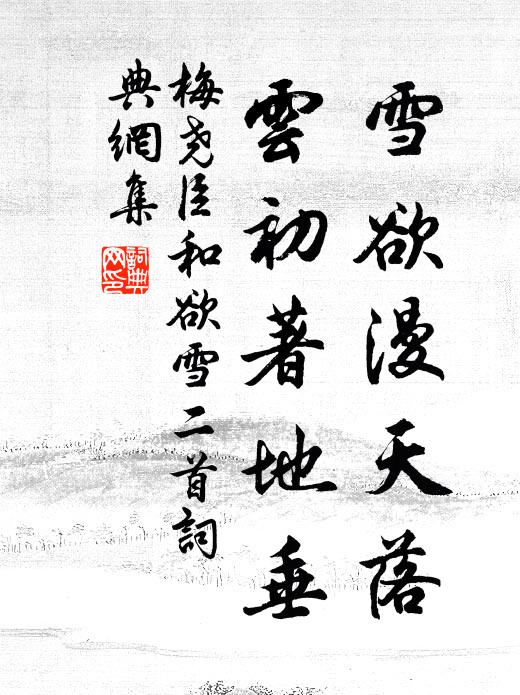 雪欲漫天落
雲初著地垂
梅尧臣和欲雪二首詞
典網集
詞典
网印